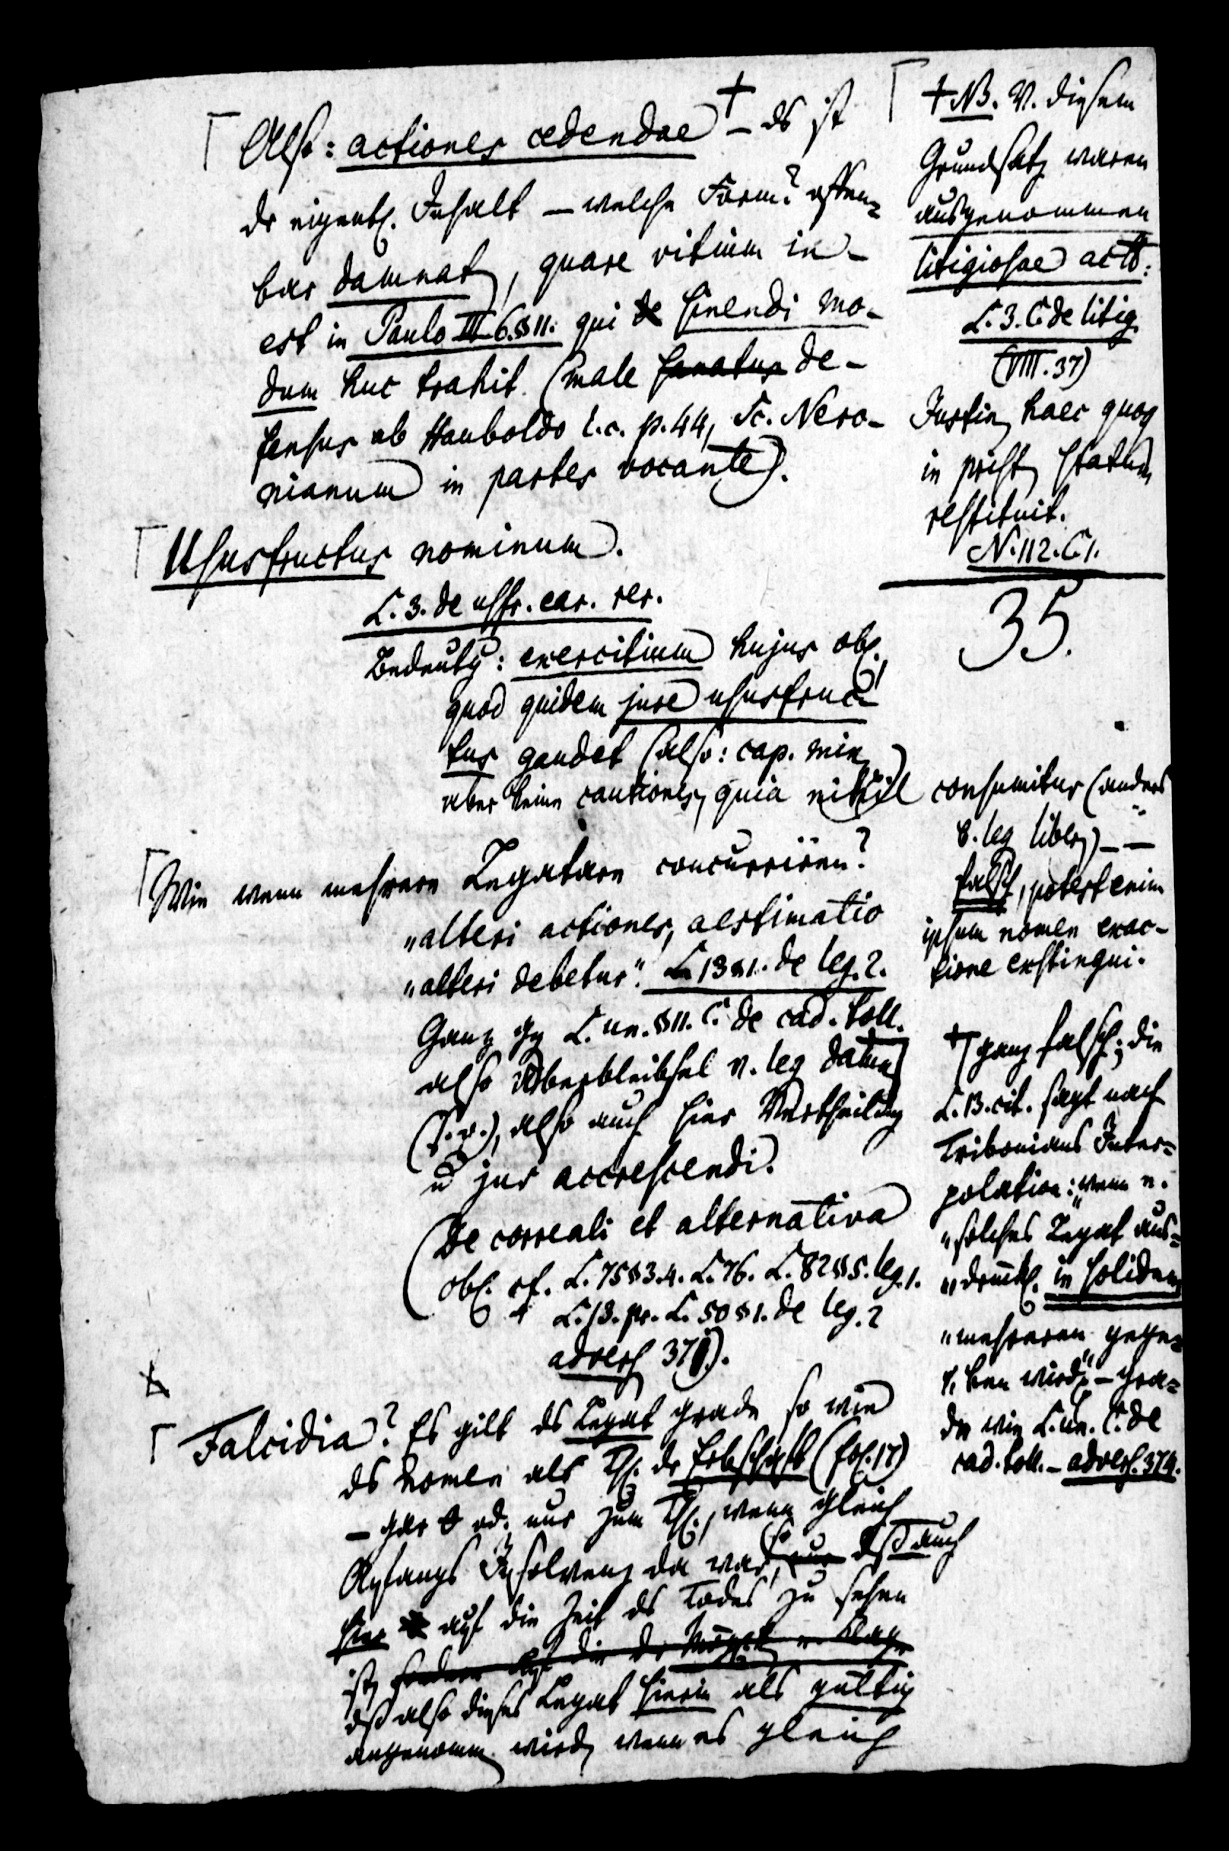 Also: actiones cedendae † – ds ist
dr eigentl. Inhalt – welche Form? offen=
bar damnat, quare vitium in-
est in Paulo III. 6. § 11. qui de sinendi mo-
dum huc trahit. (male sanatus de-
fensus ab Hauboldo l. c. p. 44, Sc. Nero-
nianum in partes vocante).
Ususfructus nominum.
L. 3. de usfr. ear. rer.
Bedeutg: exercitium hujus obl.
quod quidem jure ususfruc-
tus gaudet (also: cap. min.)
aber keine cautiones, quia nihil consumitur (anders
b. leg. liber.) – –
falsch, potest enim
ipsum nomen exac-
tione exstingui.
Wie wenn mehrere Legatare concurriren?
„alteri actiones, aestimatio
„alteri debetur." L 13 § 1. de leg. 2.
Ganz gg L. un. § 11. C. de cad. toll.
also Überbleibsel v. leg. damn.
(s. v.), also auch hier Vertheilung
u jus accrescendi.
(De correali et alternativa
obl. cf. L. 75 § 3. 4. L. 76. L. 82 § 5. leg. 1.
L. 13. pr. L. 50 § 1. de leg. 2
advers. 371.).
Falcidia? Es gilt ds Legat grade so wie
ds nomen als Th. dr Erbschaft (fol. 17)
– gar od. nur zum Th., wenn gleich
Anfangs Insolvenz da war, so nur dß auch
hier auf die Zeit ds Todes zu sehen
ist, sondern auf die dr Möglk. e. Klage
dß also dieses Legat hierin als gültig
angenomm. wird, wenn es gleich
† NB. V. diesem
Grundsatz waren
ausgenommen
litigiosae actt:
L. 3. C. de litig.
(VIII. 37)
Justin. haec quoq
in prist. statum
restituit.
N. 112. C 1.
35.
† ganz falsch; die
L. 13. cit. sagt nach
Tribonians Inter=
polation: „wenn e.
„solches Legat aus=
„drückl. in solidum
„mehreren gege=
„ben wird" – gra=
de wie L. un. C. de
cad. toll. – advers. 374.